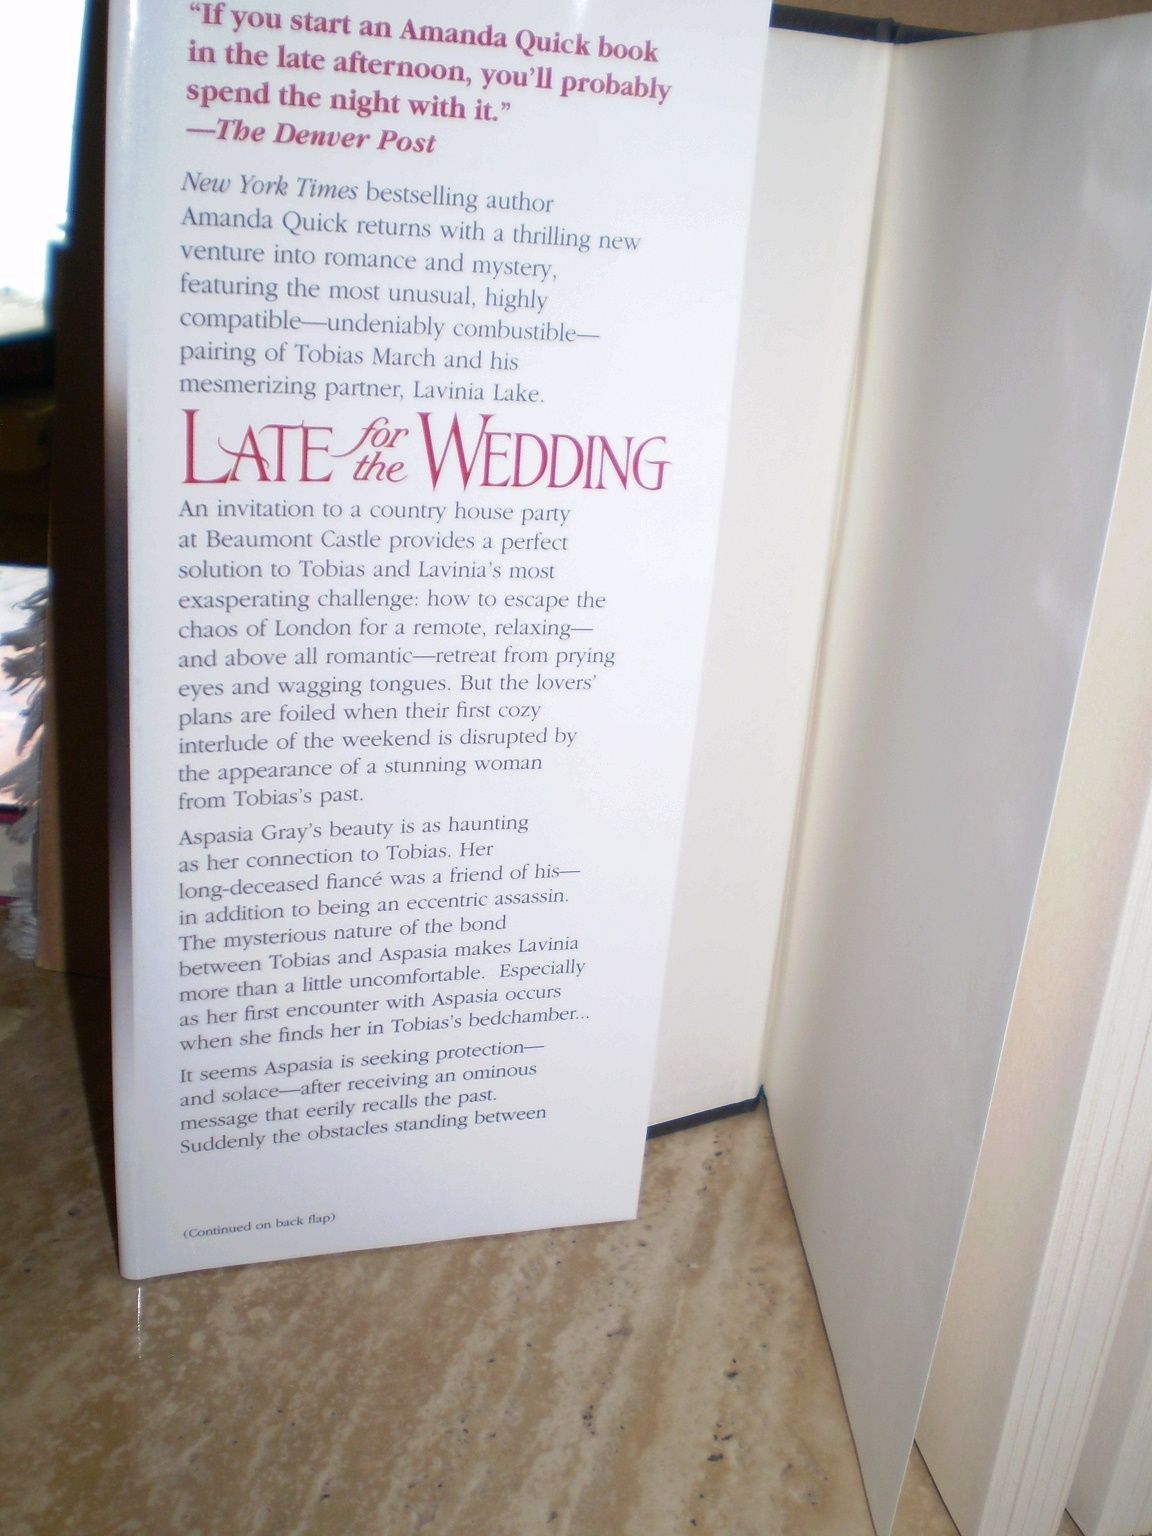 “If you start an Amanda Quick book
in the late afternoon, you’ll probably
spend the night with it.”
—The Denver Post
New York Times bestselling author
Amanda Quick returns with a thrilling new
venture into romance and mystery,
featuring the most unusual, highly
compatible—undeniably combustible—
pairing of Tobias March and his
mesmerizing partner, Lavinia Lake.
LATE for the WEDDING
An invitation to a country house party
at Beaumont Castle provides a perfect
solution to Tobias and Lavinia’s most
exasperating challenge: how to escape the
chaos of London for a remote, relaxing—
and above all romantic—retreat from prying
eyes and wagging tongues. But the lovers’
plans are foiled when their first cozy
interlude of the weekend is disrupted by
the appearance of a stunning woman
from Tobias’s past.
Aspasia Gray’s beauty is as haunting
as her connection to Tobias. Her
long-deceased fiancé was a friend of his—
in addition to being an eccentric assassin.
The mysterious nature of the bond
between Tobias and Aspasia makes Lavinia
more than a little uncomfortable. Especially
as her first encounter with Aspasia occurs
when she finds her in Tobias’s bedchamber...
It seems Aspasia is seeking protection—
and solace—after receiving an ominous
message that eerily recalls the past.
Suddenly the obstacles standing between
(Continued on back flap)